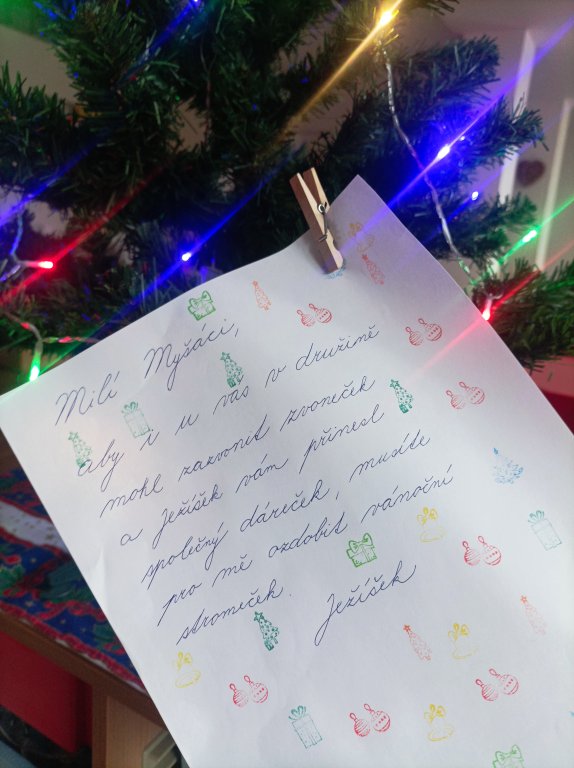 Milí Myšáci,
aby i u vás v družině
mohl zazvonit zvoneček
a Ježíšek vám přinesl
společný dáreček, musíte
pro mě ozdobit vánoční
stromeček.
Ježíšek